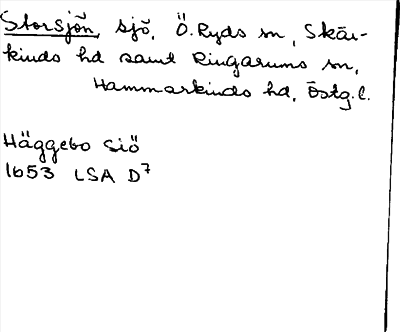 Storsjön, sjö, Ö. Ryds sn, Skär-
kinds hd samt Ringarums sn,
Hammarkinds hd, Östg. l.
Häggebo Siö
1653 LSA D7